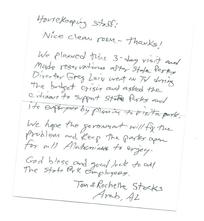 Housekeeping Staff:
Nice clean room - Thanks!
We planned this 3-day visit and
made reservations after State Parks
Director Greg Lein went on TV during
the budget crisis and asked the
citizens to support State Parks and
its employees by planning to visit a park.
We hope the government will fix the
problems and keep the parks open
for all Alabamians to enjoy.
God bless and good luck to all
The State Park Employees.
Tom & Rochelle Stocks
Arab, AL